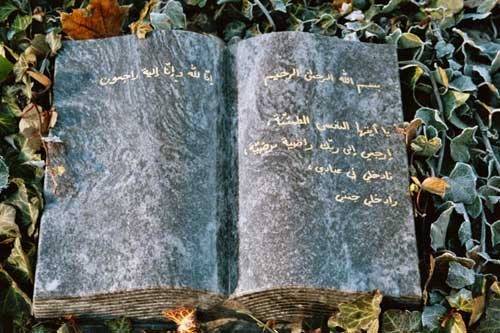 بسم الله الرحمن الرحيم
يا أيتها النفس المطمئنة
إرجعي إلى ربك راضية مرضية،
فادخلي في عبادي،
وادخلي جنتي
إنا لله وإنا إليه راجعون